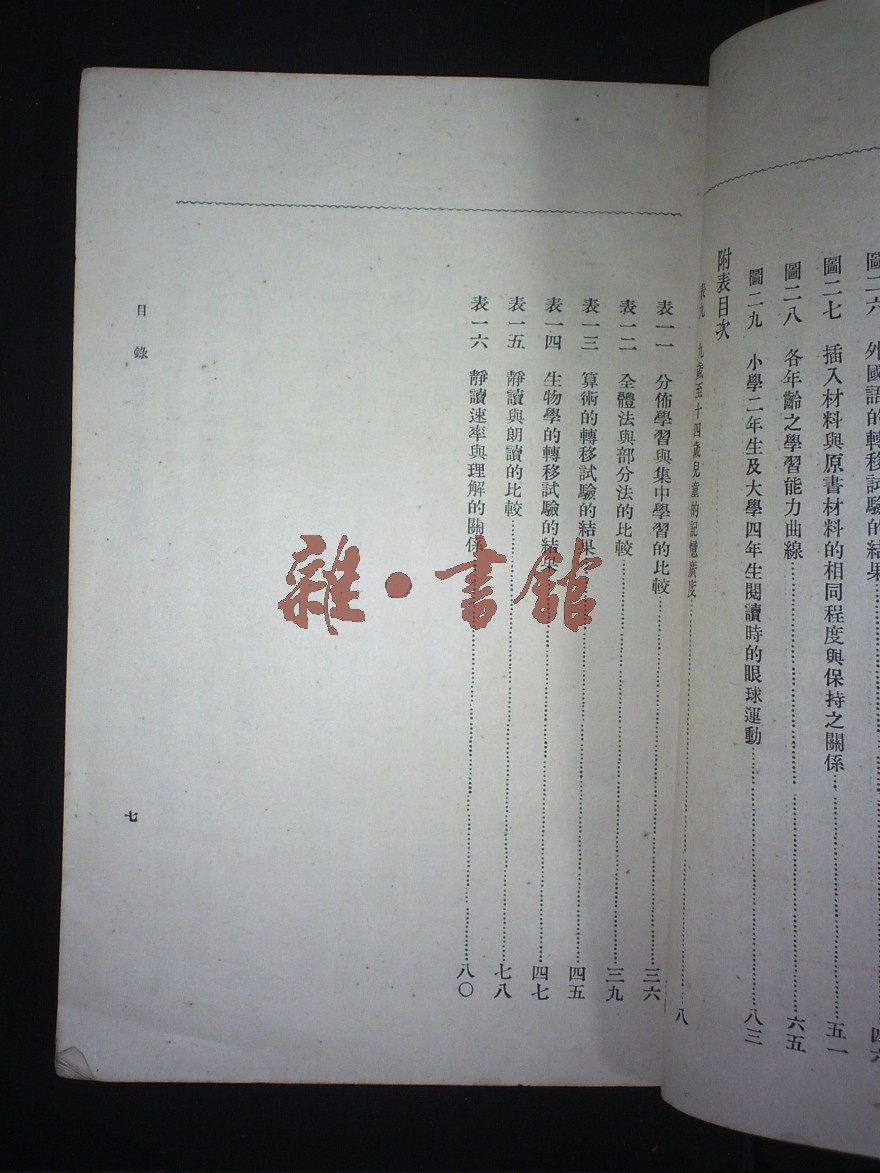 圖二六　外國語的轉移試驗的結果……四六
圖二七　插入材料與原書材料的相同程度與保持之關係……五一
圖二八　各年齡之學習能力曲線……六五
圖二九　小學二年生及大學四年生閱讀時的眼球運動……八三
附表目次
表九　九歲至十四歲兒童的記憶廣度……八
表一一　分佈學習與集中學習的比較……三六
表一二　全體法與部分法的比較……三九
表一三　算術的轉移試驗的結果……四五
表一四　生物學的轉移試驗的結果……四七
表一五　靜讀與朗讀的比較……七八
表一六　靜讀速率與理解的關係……八〇
目錄
七
雜·書館